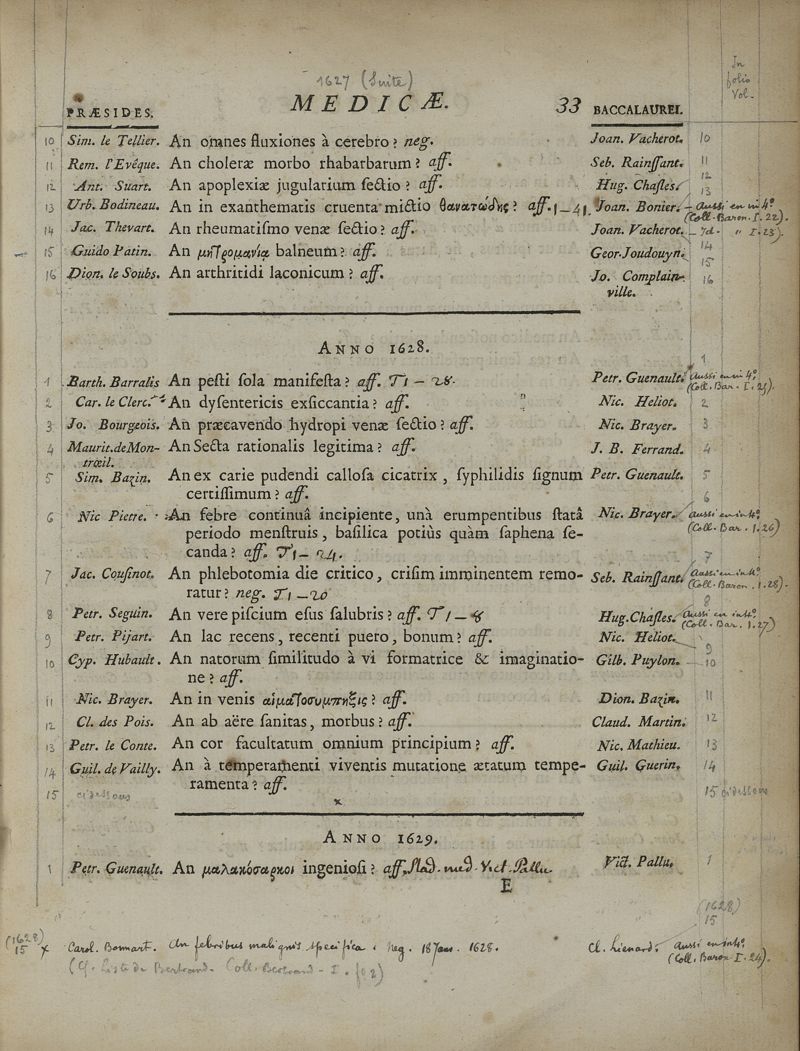 1627 (Suite)
In folio Vol.
PRÆSIDES. MEDICÆ. 33 BACCALAUREI.
10 Sim. le Tellier. An omnes fluxiones à cerebro? neg. Joan. Vacherot. 10
11 Rem. l'Evêque. An choleræ morbo rhabarbarum? aff. Seb. Rainſſant. 11
12 Ant. Suart. An apoplexiæ jugularium ſectio? aff. Hug. Chaſles. 12
13 Urb. Bodineau. An in exanthematis cruenta mictio θανατώδης? aff. Joan. Bonier. 13 – aussi en in 4º
(Coll. Baron. I. 22).
14 Jac. Thevart. An rheumatiſmo venæ ſectio? aff. Joan. Vacherot. – Id. " I. 23).
15 Guido Patin. An μητρομανία balneum? aff. Geor. Joudouyn. 14
15
16 Dion. le Soubs. An arthritidi laconicum? aff. Jo. Complain- 16
ville.
ANNO 1628.
1
1 Barth. Barralis An peſti ſola manifeſta? aff. T1 – 28. Petr. Guenault. aussi en in 4º
(Coll. Bar. I. 25).
2 Car. le Clerc. An dyſentericis exſiccantia? aff. Nic. Heliot. 2
3 Jo. Bourgeois. An præcavendo hydropi venæ ſectio? aff. Nic. Brayer. 3
4 Maurit. de Mon- An Secta rationalis legitima? aff. J. B. Ferrand. 4
trœil.
5 Sim. Bazin. An ex carie pudendi calloſa cicatrix, ſyphilidis ſignum Petr. Guenault. 5
certiſſimum? aff.
6
6 Nic Pietre. An febre continuâ incipiente, unà erumpentibus ſtatâ Nic. Brayer. aussi en in-4º
periodo menſtruis, baſilica potiùs quàm ſaphena ſe- (Coll. Bar. I. 26)
canda? aff. T1 – 24.
7
7 Jac. Couſinot. An phlebotomia die critico, criſim imminentem remo- Seb. Rainſſant. aussi en in 4º
ratur? neg. T1 – 20 (Coll. Baron. I. 28).
8
8 Petr. Seguin. An vere piſcium eſus ſalubris? aff. T1 – 8 Hug. Chaſles. aussi en in 4º
(Coll. Bar. I. 27)
9 Petr. Pijart. An lac recens, recenti puero, bonum? aff. Nic. Heliot. 9
10 Cyp. Hubault. An natorum ſimilitudo à vi formatrice & imaginatio- Gilb. Puylon. 10
ne? aff.
11 Nic. Brayer. An in venis αἱματοσυμπηξις? aff. Dion. Bazin. 11
12 Cl. des Pois. An ab aëre ſanitas, morbus? aff. Claud. Martin. 12
13 Petr. le Conte. An cor facultatum omnium principium? aff. Nic. Mathieu. 13
14 Guil. de Vailly. An à temperamenti viventis mutatione ætatum tempe- Guil. Guerin. 14
ramenta? aff.
15 ci dessous 15 ci dessous
x
ANNO 1629.
1 Petr. Guenault. An μαλακόσαρκοι ingenioſi? aff. Vict. Pallu. 1
E
(1628)
15
(1628)
15 x Carol. Bonnart. An febribus malignis specifica. Neg. 18 Jan. 1628. Cl. Lienard. aussi en in 4º
(Coll. Baron I. 24).
(Cf. Liste de Bertrand. Coll. Bertrand – I. fo 2)